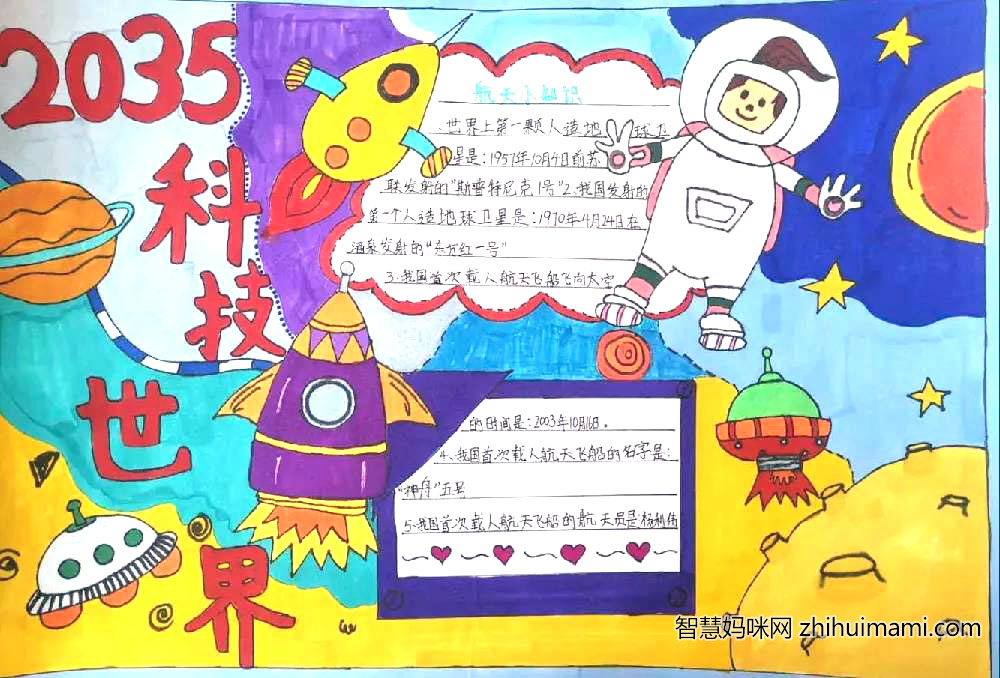 2035
科
技
世
界
航天小知识
1.世界上第一颗人造地球卫
星是:1957年10月4日前苏
联发射的"斯普特尼克1号"2.我国发射的
第一个人造地球卫星是:1970年4月24日在
酒泉发射的"东方红一号"
3.我国首次载人航天飞船飞向太空
的时间是:2003年10月16日。
4.我国首次载人航天飞船的名字是:
"神舟"五号
5.我国首次载人航天飞船的航天员是杨利伟
智慧妈咪网 zhihuimami.com